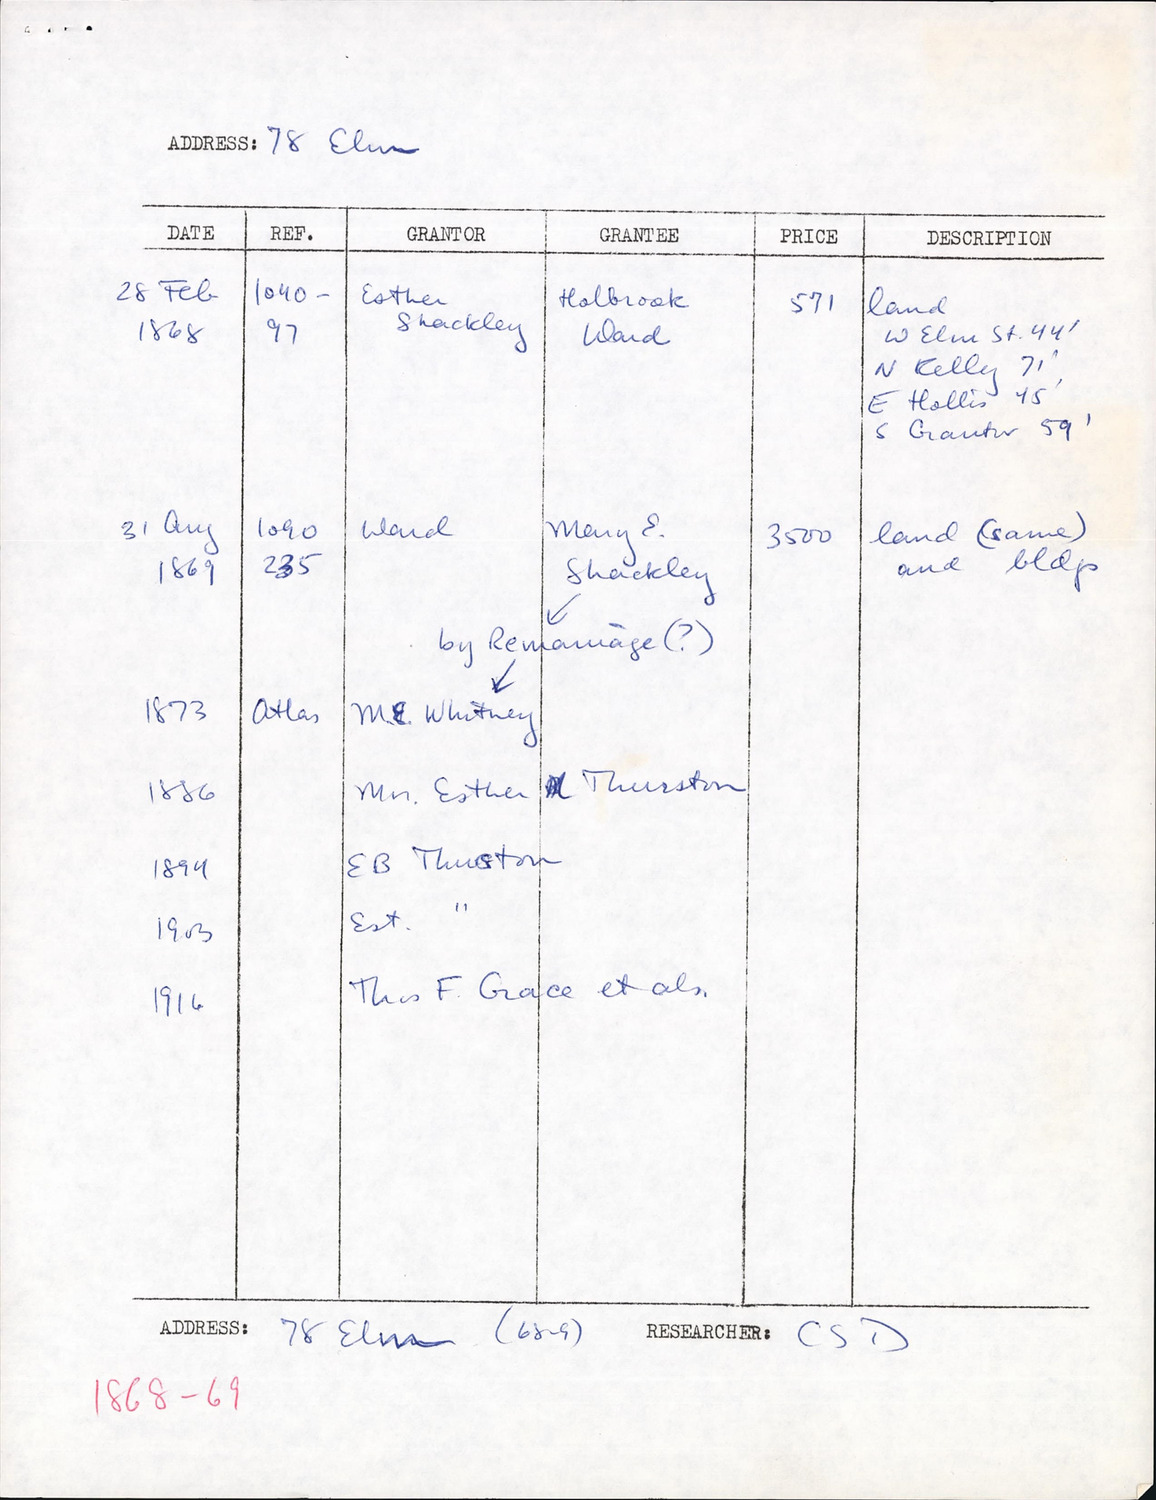 ADDRESS: 78 Elm
DATE REF. GRANTOR GRANTEE PRICE DESCRIPTION
28 Feb 1040- Esther Holbrook 571 land
1868 97 Shackley Ward W Elm St. 44'
N Kelly 71'
E Hollis 45'
S Grantor 59'
31 Aug 1090 Ward Mary E. 3500 land (same)
1869 235 Shackley and bldgs
by Remarriage (?)
1873 Atlas M.E. Whitney
1886 Mrs. Esther Thurston
1894 EB Thurston
1903 Est. "
1916 Thos F. Grace et als.
ADDRESS: 78 Elm (68-9) RESEARCHER: CSD
1868-69